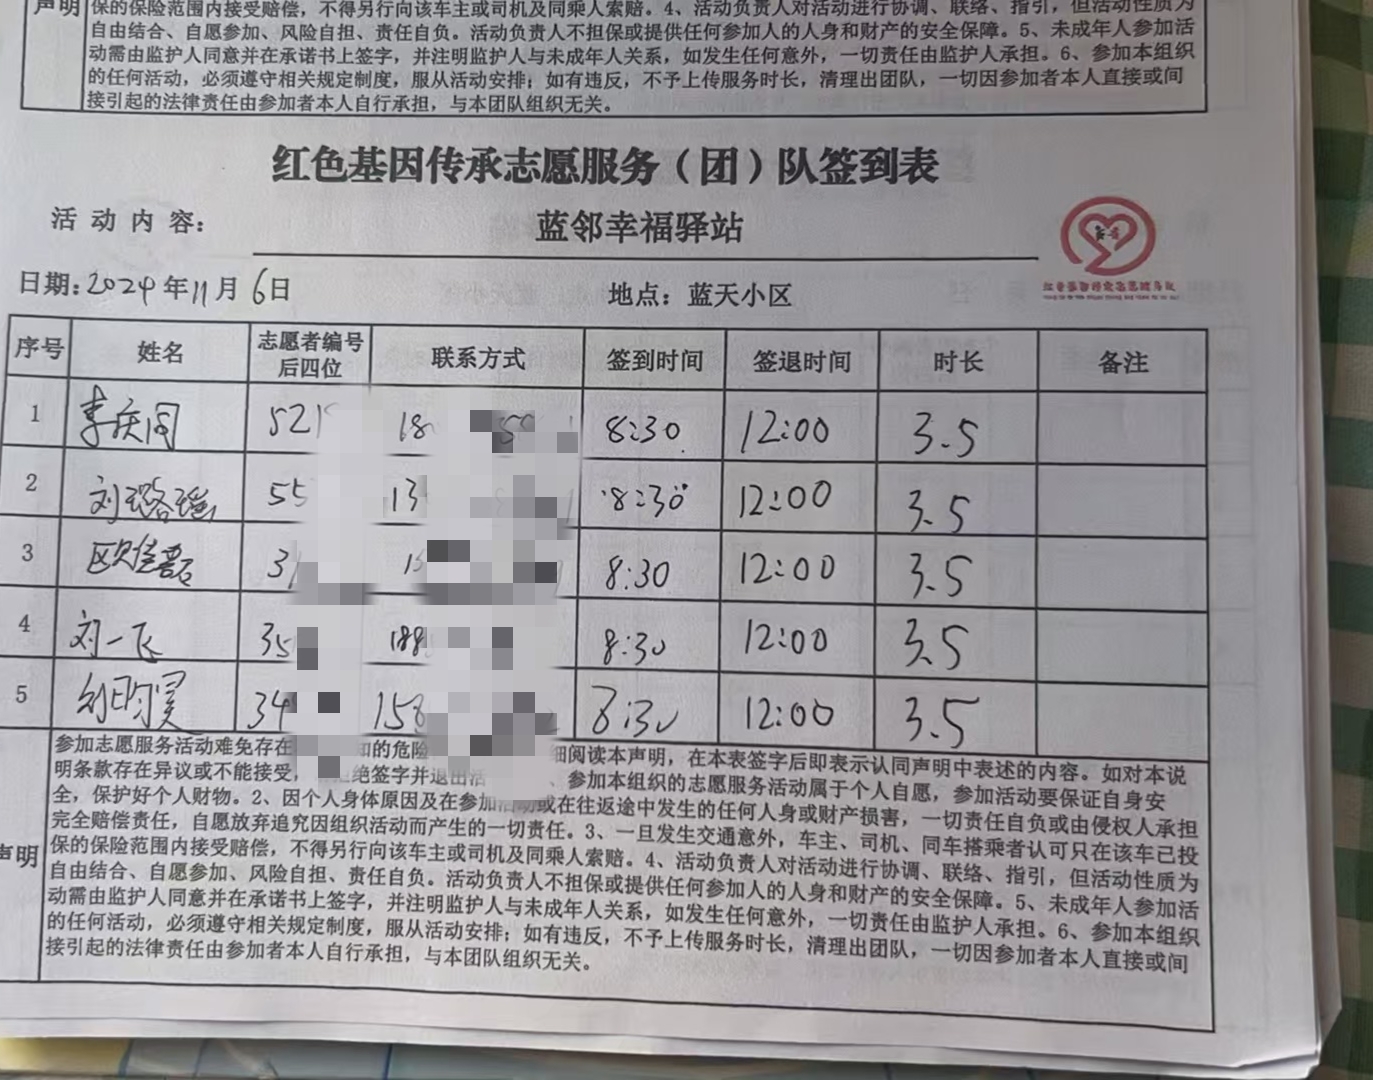 声明
保的保险范围内接受赔偿，不得另行向该车主或司机及同乘人索赔。4、活动负责人对活动进行协调、联络、指引，但活动性质为
自由结合、自愿参加、风险自担、责任自负。活动负责人不担保或提供任何参加人的人身和财产的安全保障。5、未成年人参加活
动需由监护人同意并在承诺书上签字，并注明监护人与未成年人关系，如发生任何意外，一切责任由监护人承担。6、参加本组织
的任何活动，必须遵守相关规定制度，服从活动安排；如有违反，不予上传服务时长，清理出团队，一切因参加者本人直接或间
接引起的法律责任由参加者本人自行承担，与本团队组织无关。
红色基因传承志愿服务（团）队签到表
活动内容：
蓝邻幸福驿站
日期：2024年11月6日
地点：蓝天小区
序号 姓名 志愿者编号后四位 联系方式 签到时间 签退时间 时长 备注
1 李庆同 521 18 8:30 12:00 3.5
2 刘璐瑶 55 13 8:30 12:00 3.5
3 欧佳 3 8:30 12:00 3.5
4 刘一飞 35 188 8:30 12:00 3.5
5 34 158 8:30 12:00 3.5
声明
参加志愿服务活动难免存在 知的危险 细阅读本声明，在本表签字后即表示认同声明中表述的内容。如对本说
明条款存在异议或不能接受， 绝签字并退出活 、参加本组织的志愿服务活动属于个人自愿，参加活动要保证自身安
全，保护好个人财物。2、因个人身体原因及在参加活动或在往返途中发生的任何人身或财产损害，一切责任自负或由侵权人承担
完全赔偿责任，自愿放弃追究因组织活动而产生的一切责任。3、一旦发生交通意外，车主、司机、同车搭乘者认可只在该车已投
保的保险范围内接受赔偿，不得另行向该车主或司机及同乘人索赔。4、活动负责人对活动进行协调、联络、指引，但活动性质为
自由结合、自愿参加、风险自担、责任自负。活动负责人不担保或提供任何参加人的人身和财产的安全保障。5、未成年人参加活
动需由监护人同意并在承诺书上签字，并注明监护人与未成年人关系，如发生任何意外，一切责任由监护人承担。6、参加本组织
的任何活动，必须遵守相关规定制度，服从活动安排；如有违反，不予上传服务时长，清理出团队，一切因参加者本人直接或间
接引起的法律责任由参加者本人自行承担，与本团队组织无关。